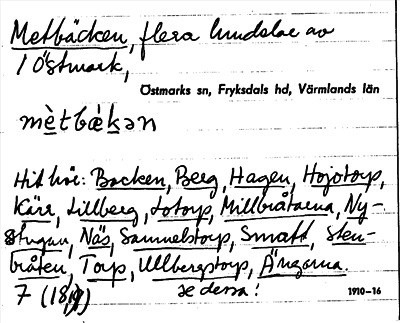 Metbäcken, flera lundelar av
1 Östmark,
Östmarks sn, Fryksdals hd, Värmlands län
mètbæ̀kən
Hit hör: Backen, Berg, Hagen, Höjotorp,
Kärr, Lillberg, Lotorp, Millbråtarna, Ny-
stugan, Näs, Samuelstorp, Smatt, Sten-
bråten, Torp, Ullbergstorp, Ängarna.
7 (18)
se dessa!
1910-16